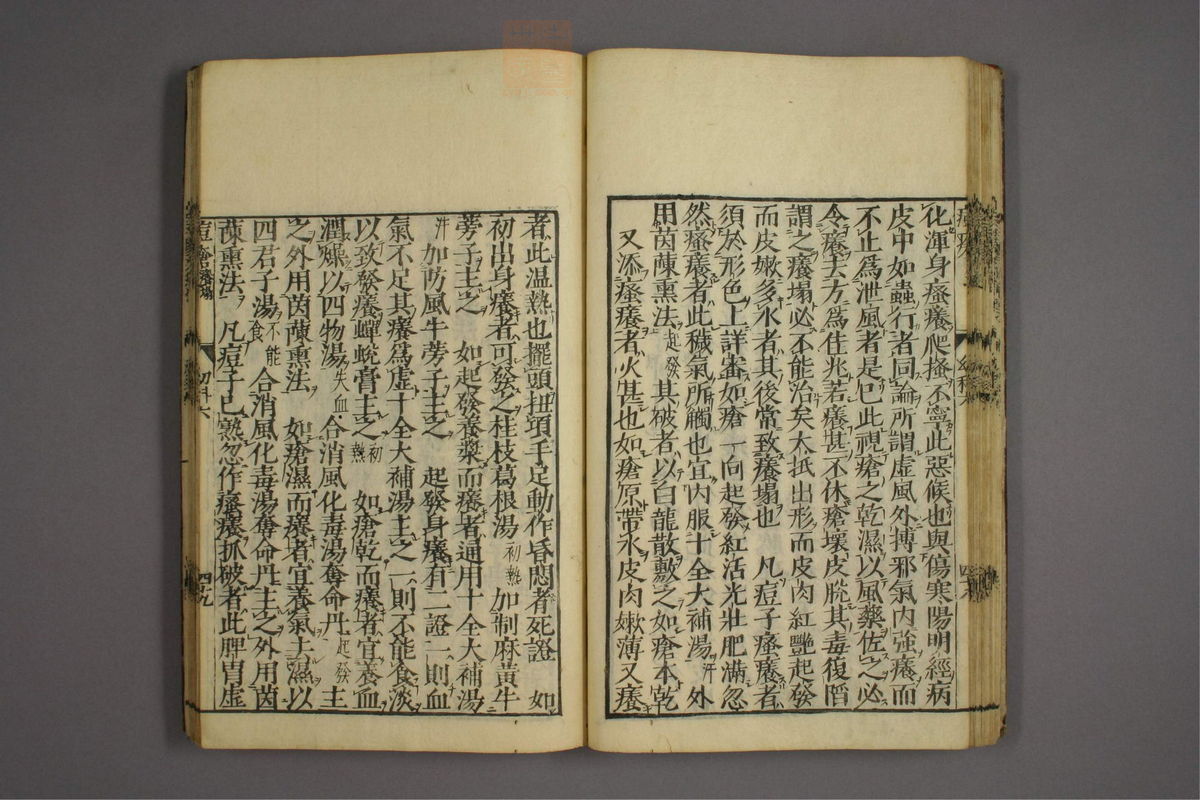 化渾身瘙癢爬搔不寧此惡候也與傷寒陽明經病
皮中如蟲行者同論所謂虛風外搏邪氣内強癢而
不止為泄風者是巳此視瘡之乾濕以風藥佐之必
令癢去方為佳兆若癢甚不休瘡壞皮脫其毒復陷
謂之癢塌必不能治矣太抵出形而皮肉紅艷起發
而皮嫩多水者其後常致癢塌也 凡痘子瘙癢者
須於形色上詳審如瘡一向起發紅活光壯肥滿忽
然瘙癢者此穢氣所觸也宜内服十全大補湯汗外
用茵蔯熏法起發其破者以白龍散敷之如瘡本乾
又添瘙癢者火甚也如瘡原帶水皮肉嫩薄又癢
者此温熱也擺頭扭項手足動作昏悶者死證 如
初出身癢者可發之桂枝葛根湯初熱加制麻黃牛
蒡子主之 如起發養漿而癢者通用十全大補湯
汗加防風牛蒡子主之 起發身癢有二證一則血
氣不足其癢為虛十全大補湯主之一則不能食淡
以致發癢蟬蛻膏主之初熱 如瘡乾而癢者宜養血
潤燥以四物湯失血合消風化毒湯奪命丹起發主
之外用茵蔯熏法 如瘡濕而癢者宜養氣去濕以
四君子湯不能食合消風化毒湯奪命丹主之外用茵
蔯熏法 凡痘子已熟忽作瘙癢抓破者此脾胃虛
痘瘡癢塌
幼科六
四十九